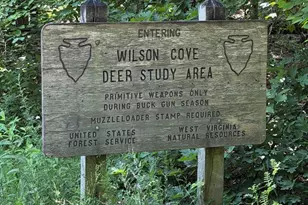 ENTERING
WILSON COVE
DEER STUDY AREA
PRIMITIVE WEAPONS ONLY
DURING BUCK GUN SEASON
MUZZLELOADER STAMP REQUIRED
UNITED STATES
FOREST SERVICE
WEST VIRGINIA
NATURAL RESOURCES